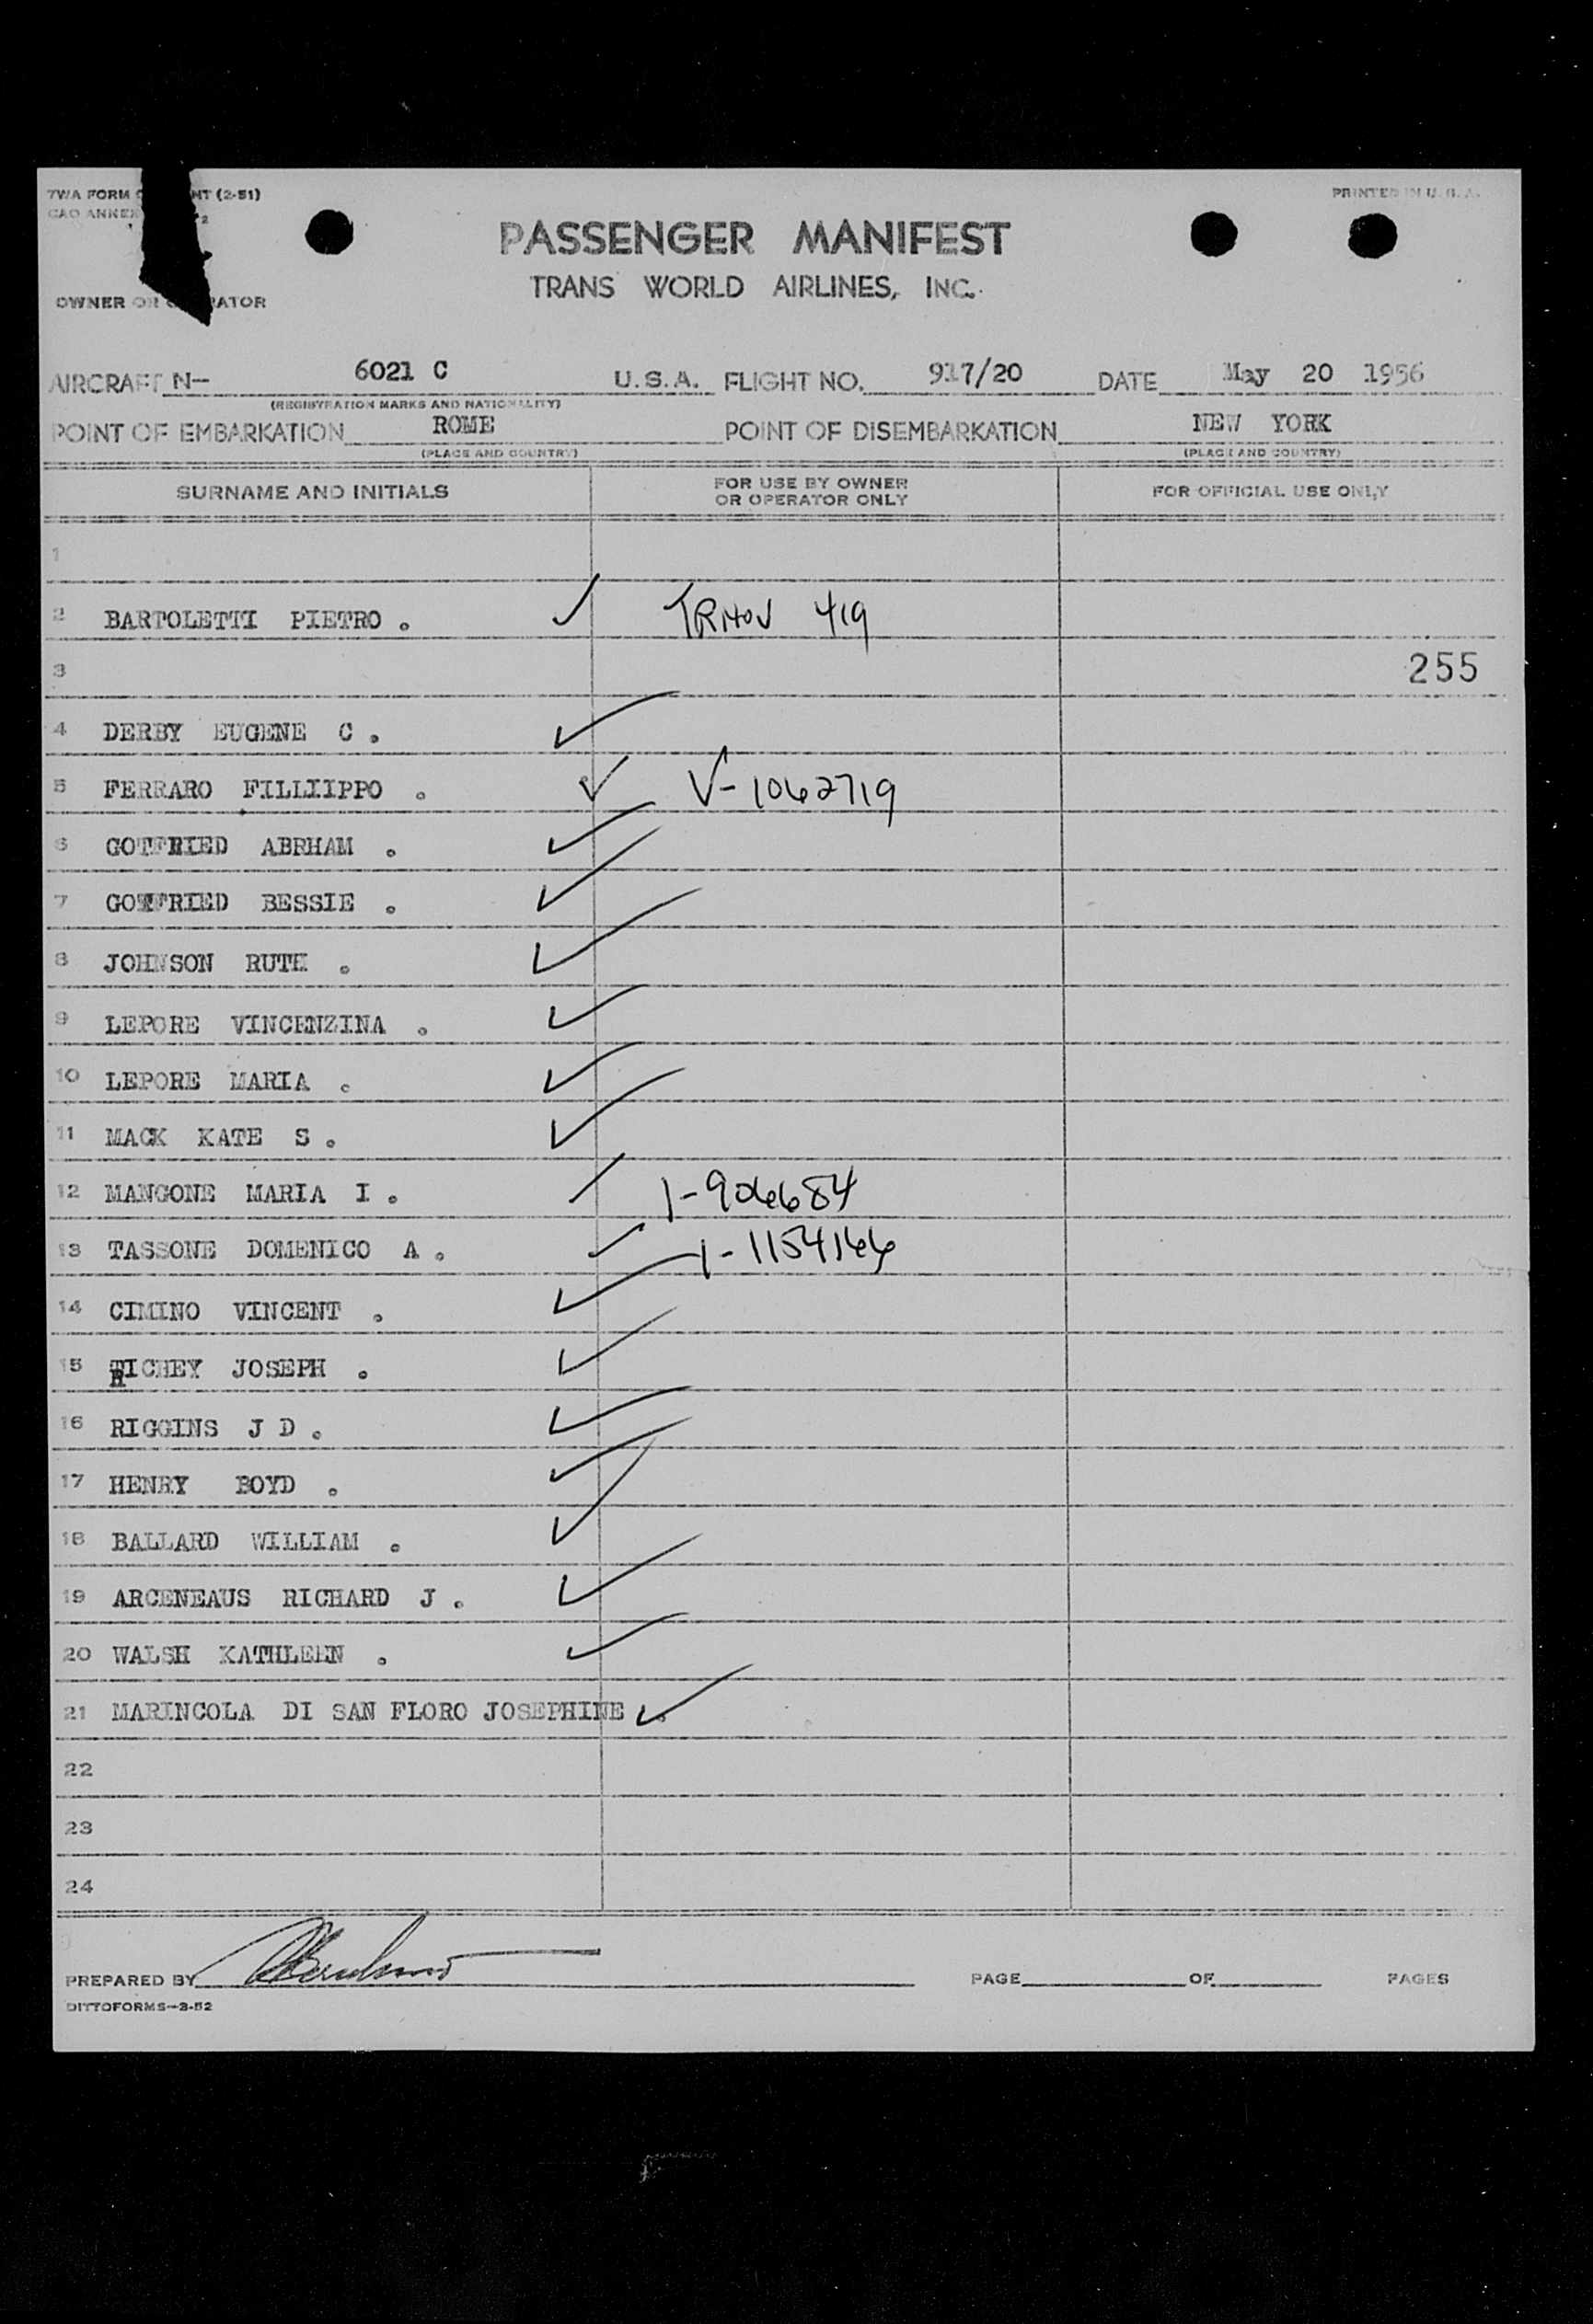 TWA FORM NT (2-51) PRINTED IN U.S.A.
CAO ANNEX 2
PASSENGER MANIFEST
TRANS WORLD AIRLINES, INC.
OWNER OR OPERATOR
AIRCRAFT N- 6021 C U.S.A. FLIGHT NO. 917/20 DATE May 20 1956
(REGISTRATION MARKS AND NATIONALITY)
POINT OF EMBARKATION ROME POINT OF DISEMBARKATION NEW YORK
(PLACE AND COUNTRY) (PLACE AND COUNTRY)
SURNAME AND INITIALS FOR USE BY OWNER OR OPERATOR ONLY FOR OFFICIAL USE ONLY
1
2 BARTOLETTI PIETRO . ✓ 419
3 255
4 DERBY EUGENE C . ✓
5 FERRARO FILLIIPPO . ✓ V-1062719
6 GOTFRIED ABRHAM . ✓
7 GOTFRIED BESSIE . ✓
8 JOHNSON RUTH . ✓
9 LEPORE VINCENZINA . ✓
10 LEPORE MARIA . ✓
11 MACK KATE S . ✓
12 MANGONE MARIA I . 1-906684
13 TASSONE DOMENICO A . ✓ 1-1154166
14 CIMINO VINCENT . ✓
15 RICHEY JOSEPH . ✓
16 RIGGINS J D . ✓
17 HENRY BOYD . ✓
18 BALLARD WILLIAM . ✓
19 ARCENEAUS RICHARD J . ✓
20 WALSH KATHLEEN . ✓
21 MARINCOLA DI SAN FLORO JOSEPHINE . ✓
22
23
24
PREPARED BY PAGE OF PAGES
DITTOFORMS-3-52